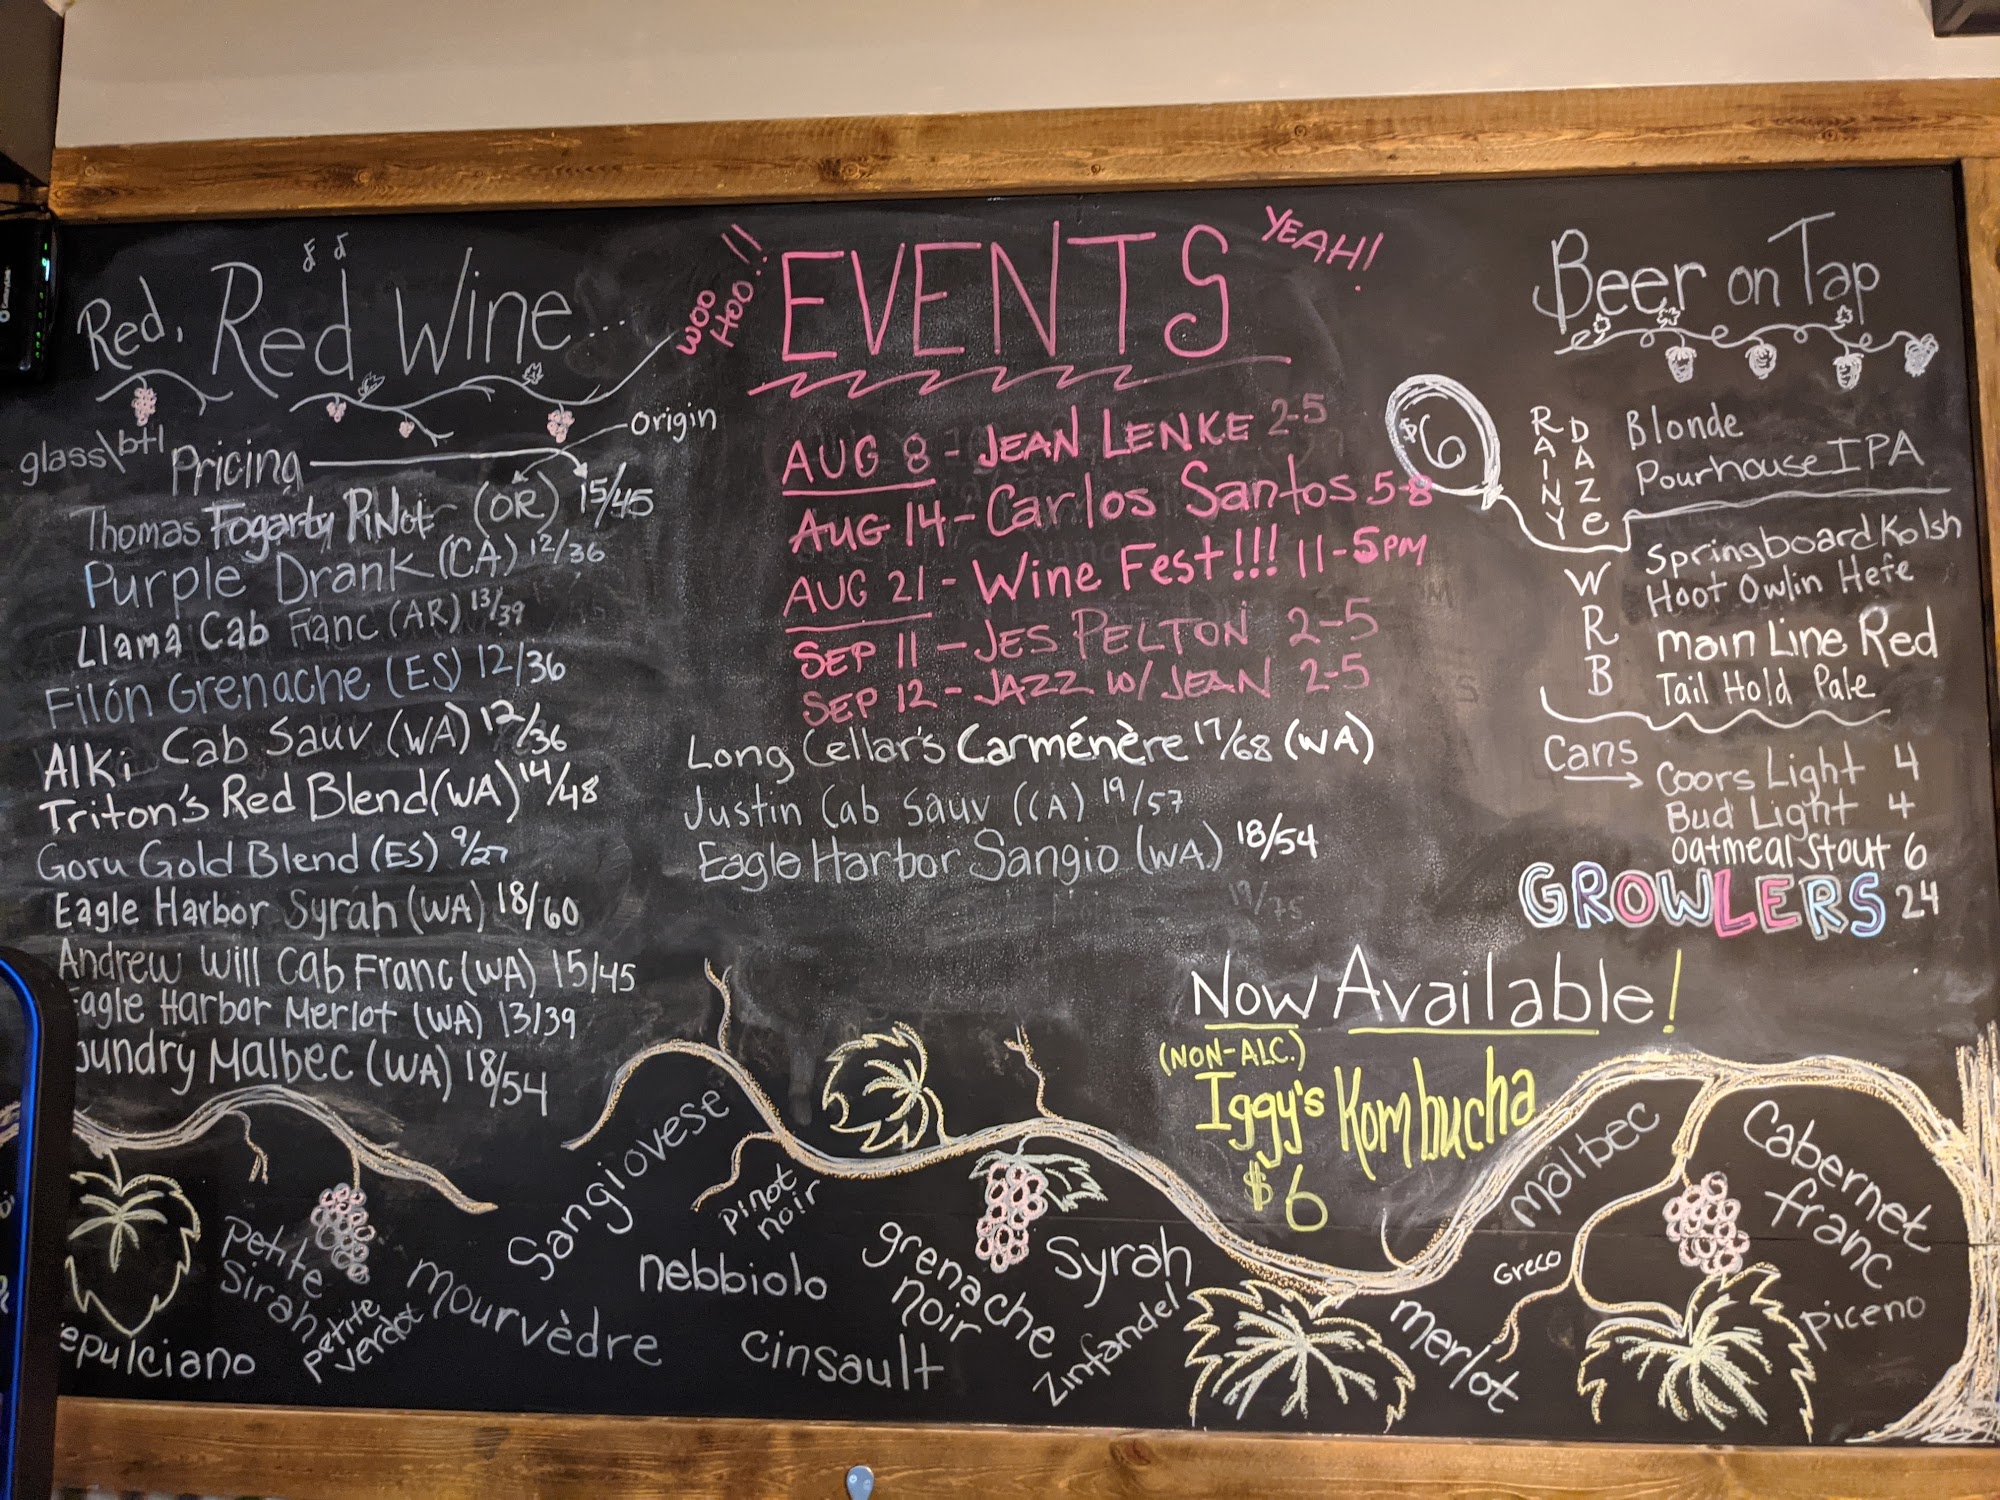 Red, Red Wine....
glass\btl Pricing
Origin
Thomas Fogarty Pinot (OR) 15/45
Purple Drank (CA) 12/36
Llama Cab Franc (AR) 13/39
Filón Grenache (ES) 12/36
Alki Cab Sauv (WA) 12/36
Triton's Red Blend (WA) 14/48
Goru Gold Blend (ES) 9/27
Eagle Harbor Syrah (WA) 18/60
Andrew Will Cab Franc (WA) 15/45
Eagle Harbor Merlot (WA) 13/39
oundry Malbec (WA) 18/54
WOO HOO!!
EVENTS
YEAH!
AUG 8 - JEAN LENKE 2-5
AUG 14 - Carlos Santos 5-8
AUG 21 - Wine Fest!!! 11-5PM
SEP 11 - JES PELTON 2-5
SEP 12 - JAZZ W/ JEAN 2-5
Long Cellar's Carménère 17/68 (WA)
Justin Cab Sauv (CA) 19/57
Eagle Harbor Sangio (WA) 18/54
19/75
Beer on Tap
$6
RAINY DAZE
Blonde
Pourhouse IPA
WRB
Springboard Kolsh
Hoot Owlin Hefe
Main Line Red
Tail Hold Pale
Cans
Coors Light 4
Bud Light 4
Oatmeal Stout 6
GROWLERS 24
Now Available!
(NON-ALC.)
Iggy's Kombucha
$6
epulciano
Petite Sirah
petite verdot
mourvèdre
Sangiovese
pinot noir
nebbiolo
cinsault
grenache noir
Syrah
Zinfandel
malbec
Greco
merlot
Cabernet franc
piceno